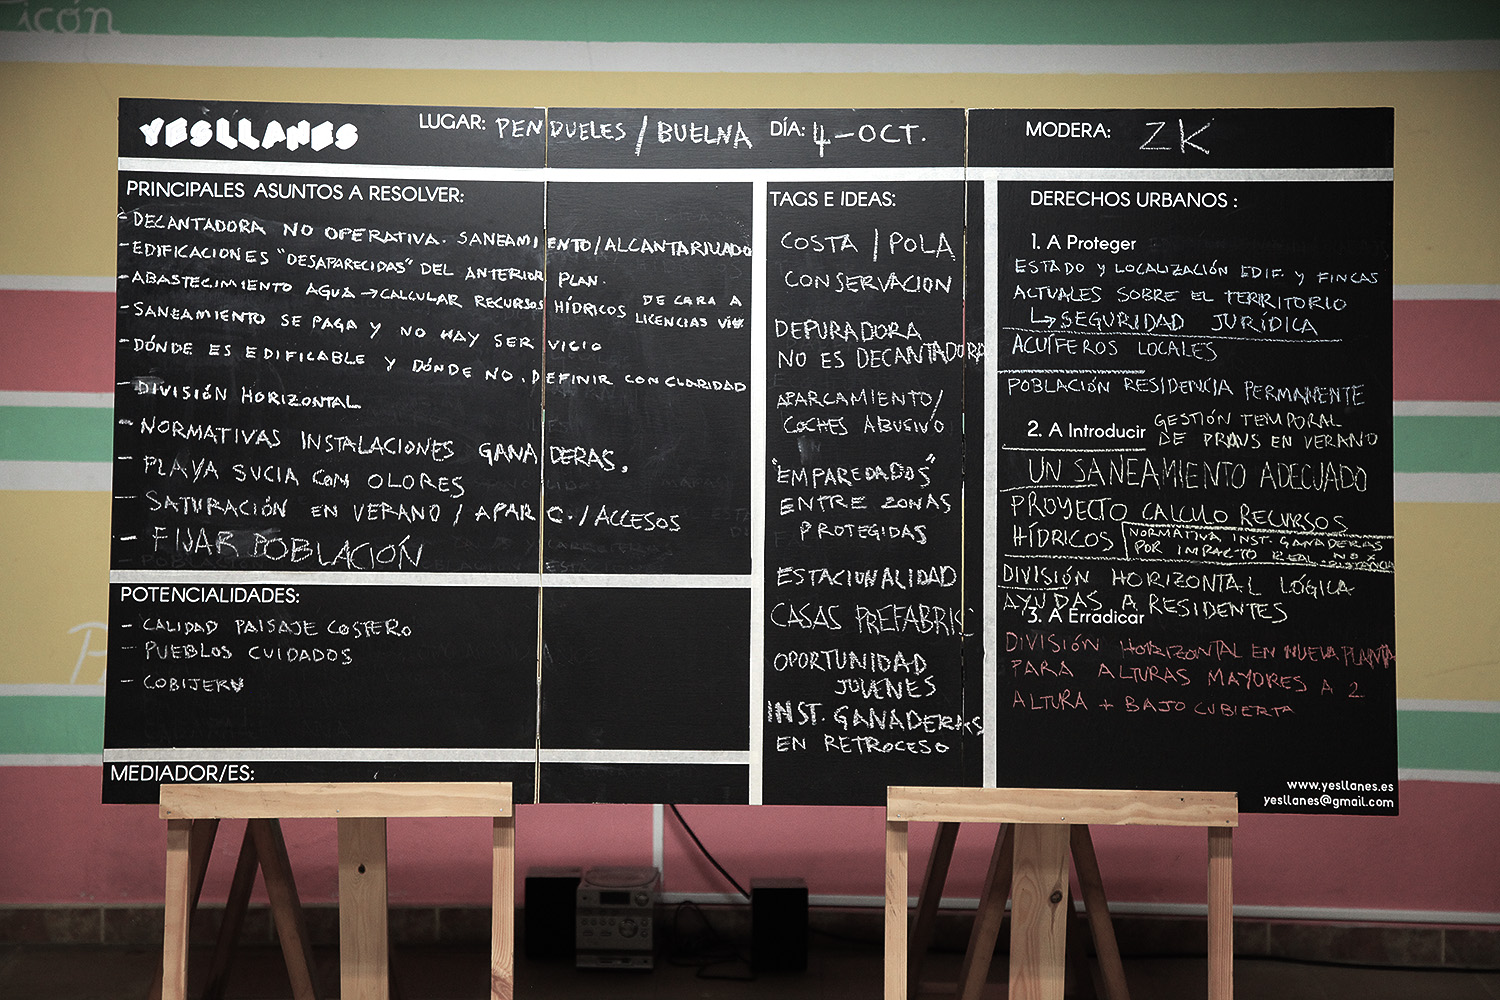 icón
YESLLANES
LUGAR: PENDUELES / BUELNA
DÍA: 4-OCT.
MODERA: ZK
PRINCIPALES ASUNTOS A RESOLVER:
- DECANTADORA NO OPERATIVA. SANEAMIENTO/ALCANTARILLADO
- EDIFICACIONES "DESAPARECIDAS" DEL ANTERIOR PLAN.
- ABASTECIMIENTO AGUA → CALCULAR RECURSOS HÍDRICOS DE CARA A
LICENCIAS
- SANEAMIENTO SE PAGA Y NO HAY SERVICIO
- DÓNDE ES EDIFICABLE Y DÓNDE NO. DEFINIR CON CLARIDAD
- DIVISIÓN HORIZONTAL
- NORMATIVAS INSTALACIONES GANADERAS.
- PLAYA SUCIA CON OLORES
- SATURACIÓN EN VERANO / APARC. / ACCESOS
- FIJAR POBLACIÓN
POTENCIALIDADES:
- CALIDAD PAISAJE COSTERO
- PUEBLOS CUIDADOS
- COBIJERU
MEDIADOR/ES:
TAGS E IDEAS:
COSTA / POLA
CONSERVACION
DEPURADORA
NO ES DECANTADORA
APARCAMIENTO/
COCHES ABUSIVO
"EMPAREDADOS"
ENTRE ZONAS
PROTEGIDAS
ESTACIONALIDAD
CASAS PREFABRIC
OPORTUNIDAD
JOVENES
INST. GANADERAS
EN RETROCESO
DERECHOS URBANOS :
1. A Proteger
ESTADO Y LOCALIZACIÓN EDIF. Y FINCAS
ACTUALES SOBRE EL TERRITORIO
↳ SEGURIDAD JURÍDICA
ACUÍFEROS LOCALES
POBLACIÓN RESIDENCIA PERMANENTE
2. A Introducir
GESTIÓN TEMPORAL
DE PRAUS EN VERANO
UN SANEAMIENTO ADECUADO
PROYECTO CALCULO RECURSOS
HÍDRICOS
NORMATIVA INST. GANADERAS
POR IMPACTO REAL NO X
DISTANCIA
DIVISIÓN HORIZONTAL LÓGICA
AYUDAS A RESIDENTES
3. A Erradicar
DIVISIÓN HORIZONTAL EN NUEVA PLANTA
PARA ALTURAS MAYORES A 2
ALTURA + BAJO CUBIERTA
www.yesllanes.es
yesllanes@gmail.com